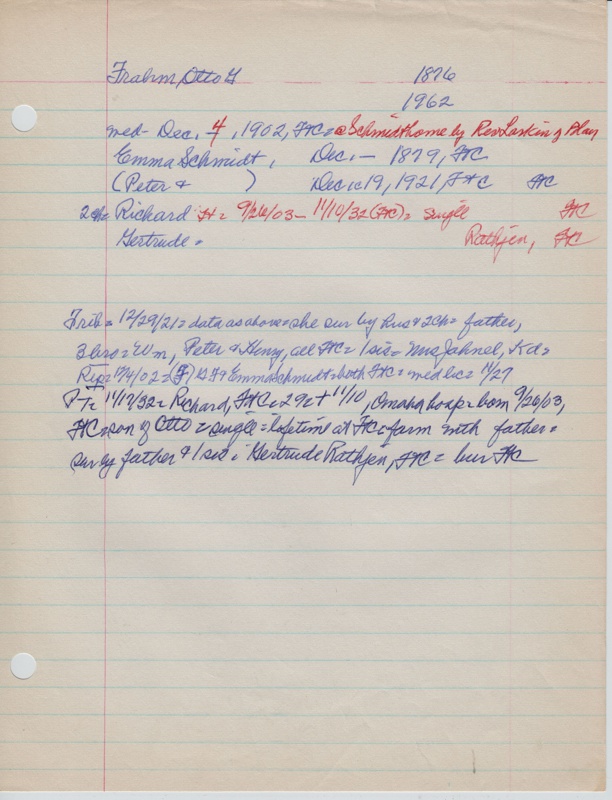 Frahm, Otto G 1876
1962
med- Dec. 4, 1902, FtC = @ Schmidt home by Rev Laskin of Blair
Emma Schmidt, Dec. – 1879, FtC
(Peter & ) Dec 19, 1921, FtC FtC
2ch = Richard H = 9/26/03 – 11/10/32 (FtC) = single FtC
Gertrude = Rathjen, FtC
Trib = 12/29/21 = data as above = she sur by hus & 2ch = father,
3 bro = Wm, Peter & Henry, all FtC = 1 sis = Mrs Jahnel,
12/4/02 = & Emma Schmidt = both FtC = med lic = 11/27
11/17/32 = Richard, FtC = 29 = + 11/10, Omaha hosp = born 9/26/03,
FtC = son of Otto = single = lifetime at FtC = farm with father =
sur by father & 1 sis = Gertrude Rathjen, FtC = bur FtC